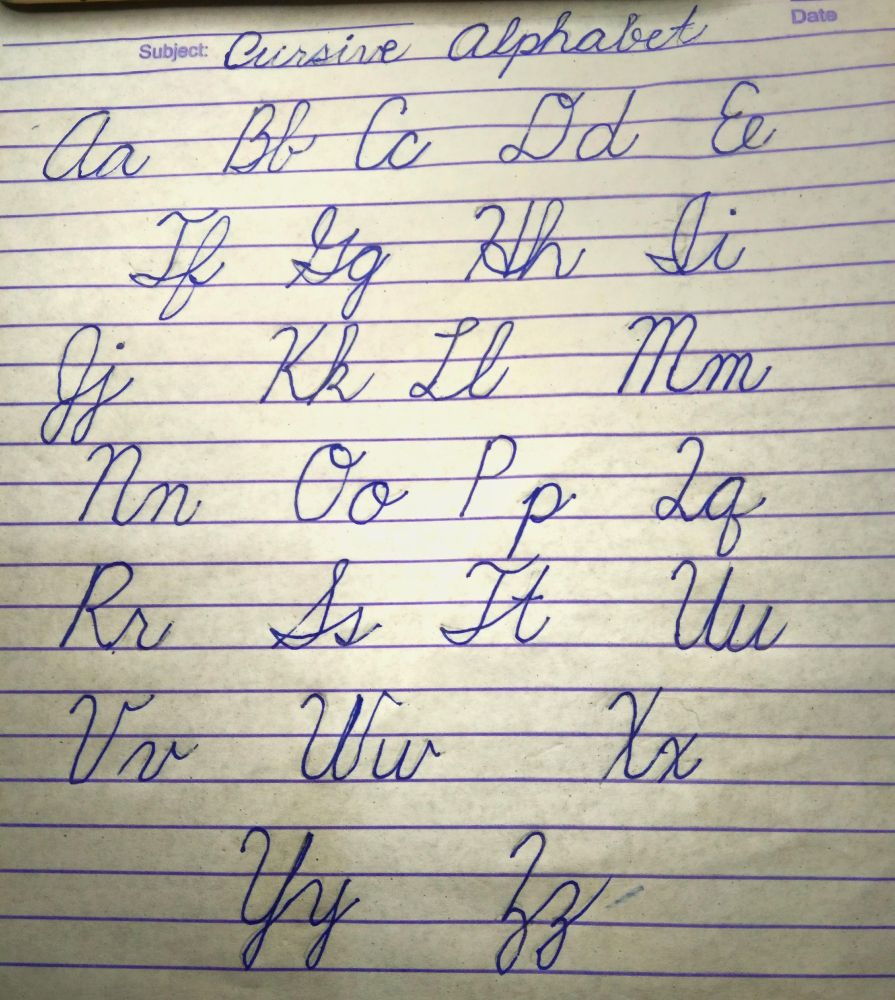 Date
Subject: Cursive Alphabet
Aa Bb Cc Dd Ee
Ff Gg Hh Ii
Jj Kk Ll Mm
Nn Oo Pp Qq
Rr Ss Tt Uu
Vv Ww Xx
Yy Zz